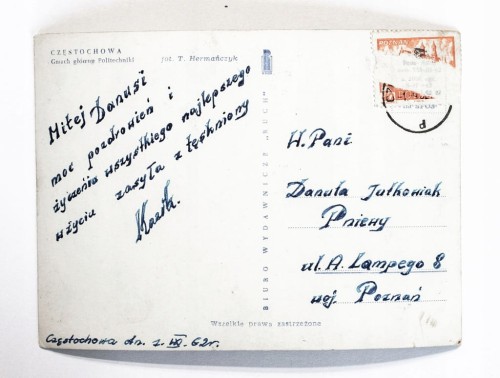 CZĘSTOCHOWA
Gmach główny Politechniki
fot. T. Hermańczyk
Miłej Danusi
moc pozdrowień i
życzenia wszystkiego najlepszego
w życiu zasyła z tęskniony
Częstochowa dn. 1. VII. 62r.
BIURO WYDAWNICZE „RUCH"
POZNAŃ
W. Pani
Danuta Jutkowiak
Pniewy
ul. A. Lampego 8
woj. Poznań
Wszelkie prawa zastrzeżone